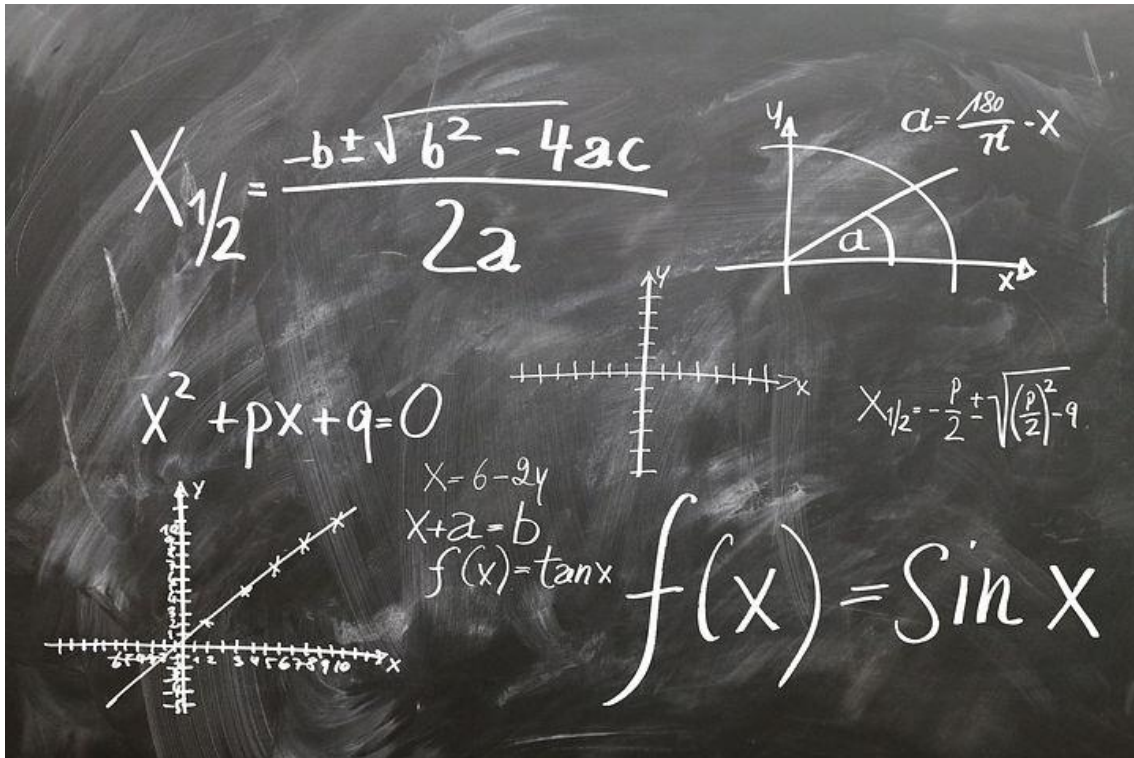 X₁/₂ = (-b ± √(b² - 4ac)) / 2a
y
a = 180/π · x
a
x
y
x
x² + px + q = 0
X₁/₂ = -p/2 ± √((p/2)² - q)
x = 6 - 2y
x + a = b
f(x) = tan x
f(x) = sin x
y
1 2 3 4 5 6 7 8 9 10
x